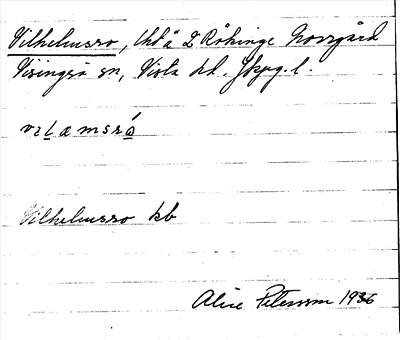 Vilhelmsro, lht å 2 Rökinge Norrgård
Visingsö sn, Vista hd. Jkpg. l.
vɪlamsró
Vilhelmsro kb
Alice Petersson 1936